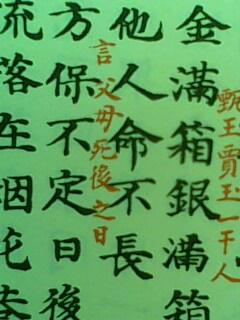 甄玉賈玉一干人
金滿箱銀滿箱
他人命不長
言父母死後之日
方保不定日後
流落在烟花巷